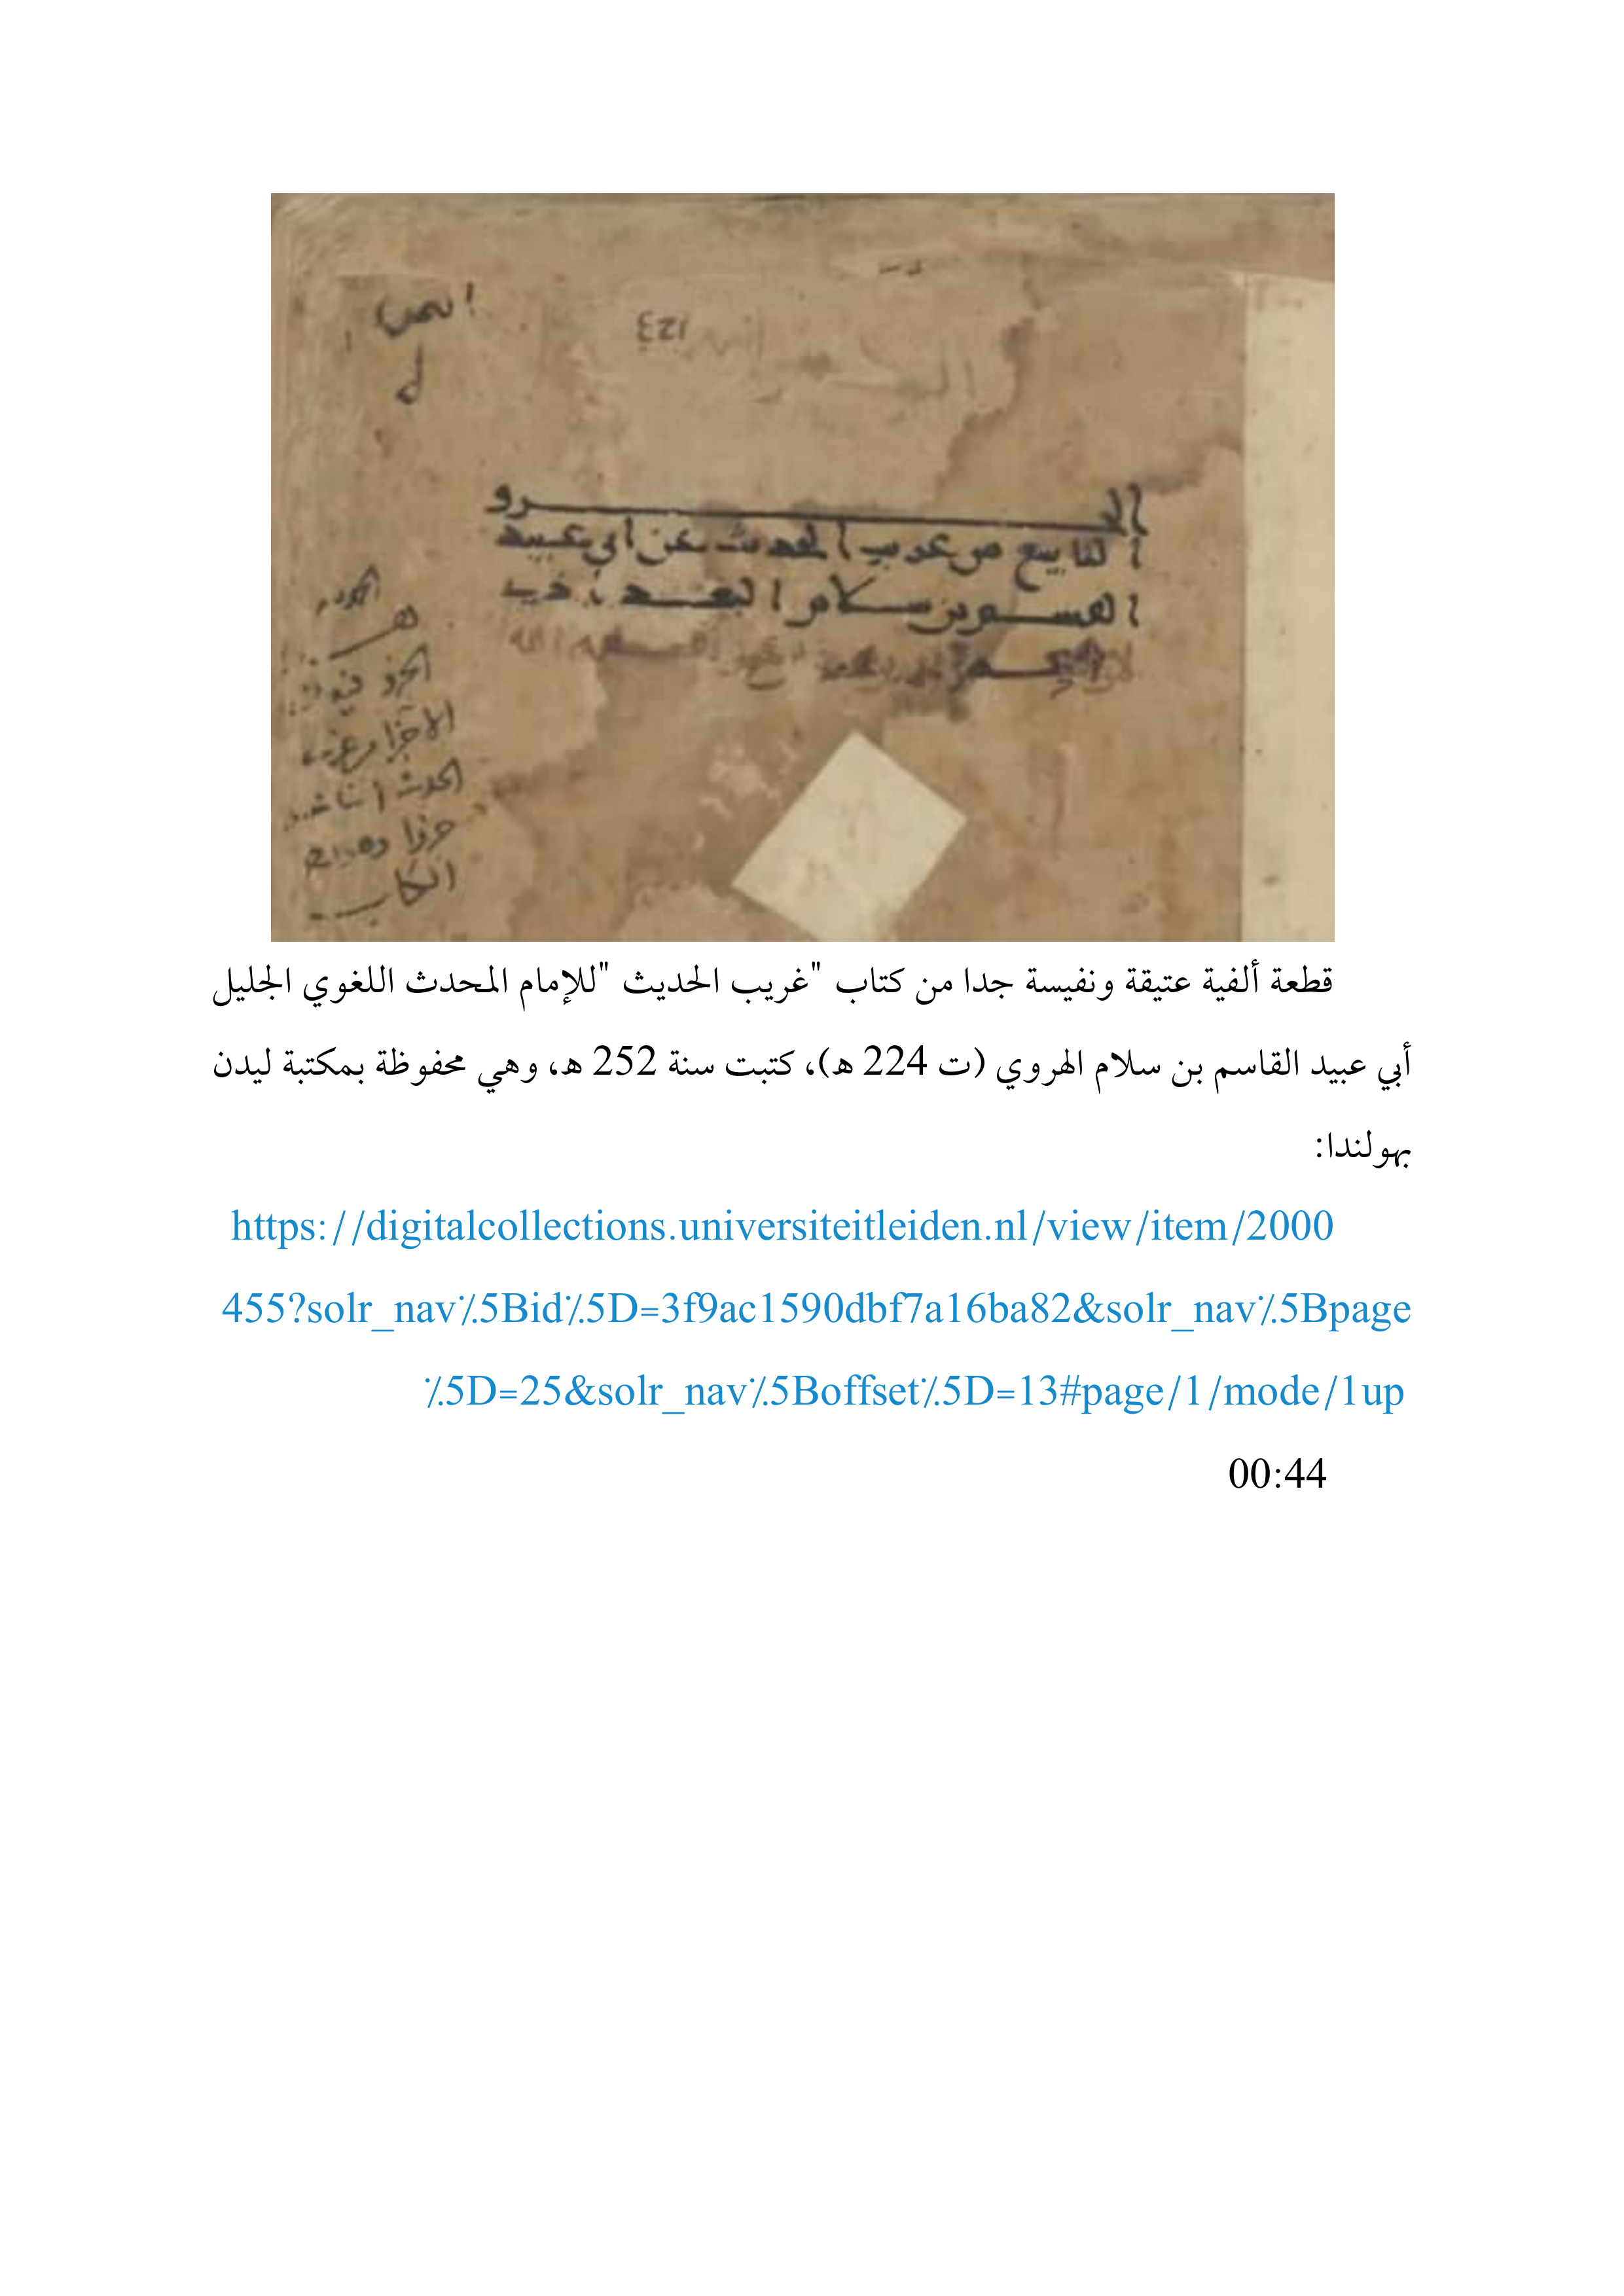 الجزو
التاسع من غريب الحديث عن أبي عبيد
القسم بن سلام البغدادي
الجزو
الحديث
الكتاب
قطعة ألفية عتيقة ونفيسة جدا من كتاب "غريب الحديث "للإمام المحدث اللغوي الجليل
أبي عبيد القاسم بن سلام الهروي (ت 224 ه)، كتبت سنة 252 ه، وهي محفوظة بمكتبة ليدن
بهولندا:
https://digitalcollections.universiteitleiden.nl/view/item/2000
455?solr_nav٪5Bid٪5D=3f9ac1590dbf7a16ba82&solr_nav٪5Bpage
٪5D=25&solr_nav٪5Boffset٪5D=13#page/1/mode/1up
00:44